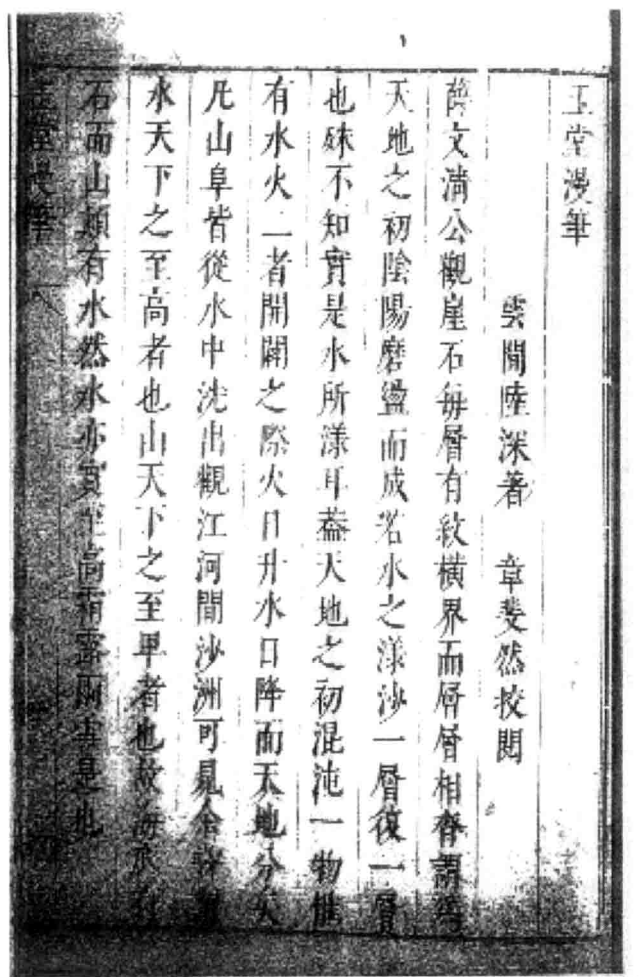 玉堂漫筆
雲間陸深著　章斐然挍閱
薛文清公觀崖石每層有紋橫界而層層相沓謂為
天地之初陰陽磨盪而成若水之漾沙一層復一層
也殊不知實是水所漾耳葢天地之初混沌一物惟
有水火二者開闢之際火日升水日降而天地分矣
凡山阜皆從水中洗出觀江河間沙洲可見余
水天下之至高者也山天下之至卑者也故海
石而山類有水然水亦實至高霜露雨雪是也
玉堂漫筆　八